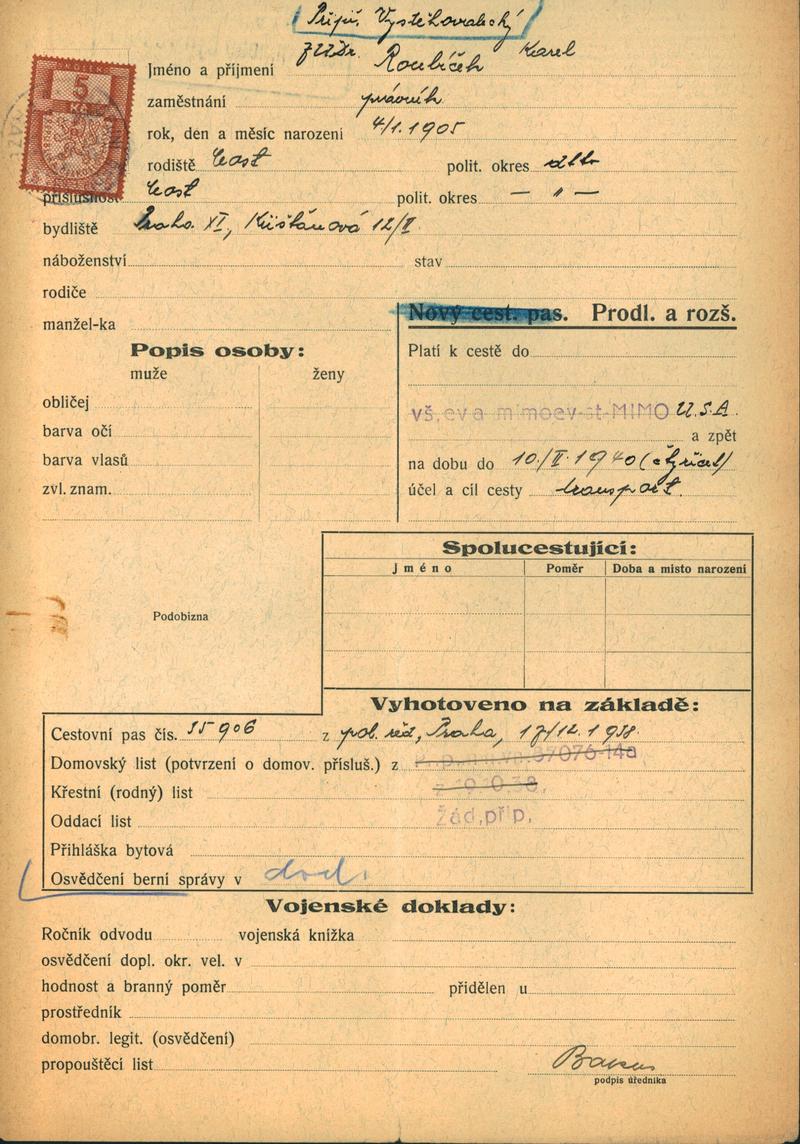 Připu. Vystěhovalecký
JUDr. Roubíček Karel
5
Kč
Jméno a příjmení
zaměstnání právník
rok, den a měsíc narození 4/1. 1905
rodiště polit. okres dtto
příslušnost polit. okres — " —
bydliště Praha XI, Křišťanová 12/I
náboženství stav
rodiče
manžel-ka
Nový cest. pas. Prodl. a rozš.
Popis osoby:
muže ženy
obličej
barva očí
barva vlasů
zvl. znam.
Platí k cestě do
vš.ev a mimoev.st-MIMO U.S.A.
a zpět
na dobu do 10./II. 1940 (čtyřicet)
účel a cíl cesty transport.
Spolucestující:
Jméno Poměr Doba a místo narození
Podobizna
Vyhotoveno na základě:
Cestovní pas čís. 55906 z pol. řed, Praha, 17/12. 1938.
Domovský list (potvrzení o domov. přísluš.) z 37076-14a
Křestní (rodný) list
Oddací list Žád,příp,
Přihláška bytová
Osvědčení berní správy v dod.
Vojenské doklady:
Ročník odvodu vojenská knížka
osvědčení dopl. okr. vel. v
hodnost a branný poměr přidělen u
prostředník
domobr. legit. (osvědčení)
propouštěcí list
podpis úředníka